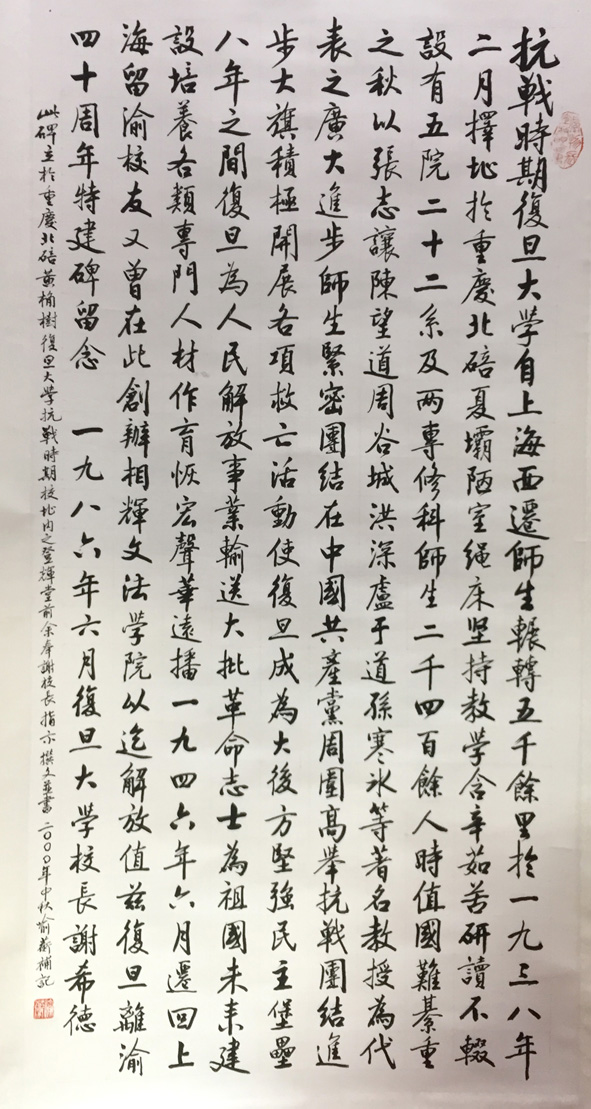 抗戰時期復旦大學自上海西遷師生輾轉五千餘里於一九三八年
二月擇址於重慶北碚夏壩陋室繩床坚持教學含辛茹苦研讀不輟
設有五院二十二系及两專修科師生二千四百餘人時值國難綦重
之秋以張志讓陳望道周谷城洪深盧于道孫寒冰等著名教授為代
表之廣大進步師生緊密團結在中國共產黨周圍高舉抗戰團結進
步大旗積極開展各項救亡活動使復旦成為大後方堅強民主堡壘
八年之間復旦為人民解放事業輸送大批革命志士為祖國未来建
設培養各類專門人材作育恢宏聲華遠播一九四六年六月遷回上
海留渝校友又曾在此創辦相輝文法學院以迄解放值兹復旦離渝
四十周年特建碑留念 一九八六年六月復旦大學校長謝希德
此碑立於重慶北碚黃桷樹復旦大學抗戰時期校址内之登輝堂前余奉謝校長指示撰文并書 二〇〇〇年中秋 喻蘅補記